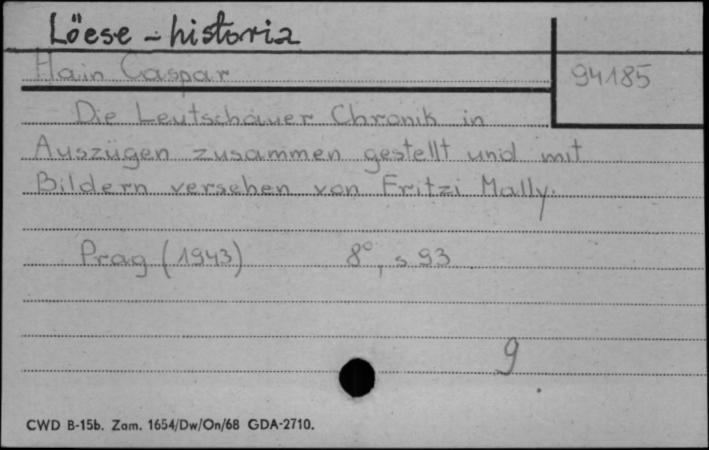 Löese - historia
Hain Caspar
94185
Die Leutschauer Chronik in
Auszügen zusammen gestellt und mit
Bildern versehen von Fritzi Mally.
Prag (1943) 8°, s 93
9
CWD B-15b. Zam. 1654/Dw/On/68 GDA-2710.